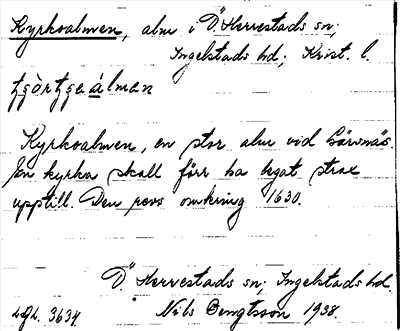 Kyrkoalmen, alm i Ö. Herrestads sn;
Ingelstads hd; Krist. l.
Kyrkoalmen, en stor alm vid
En kyrka skall förr ha legat strax
upptill. Den revs omkring 1630.
Ö. Herrestads sn; Ingelstads hd.
Nils Bengtsson 1938.
3634.